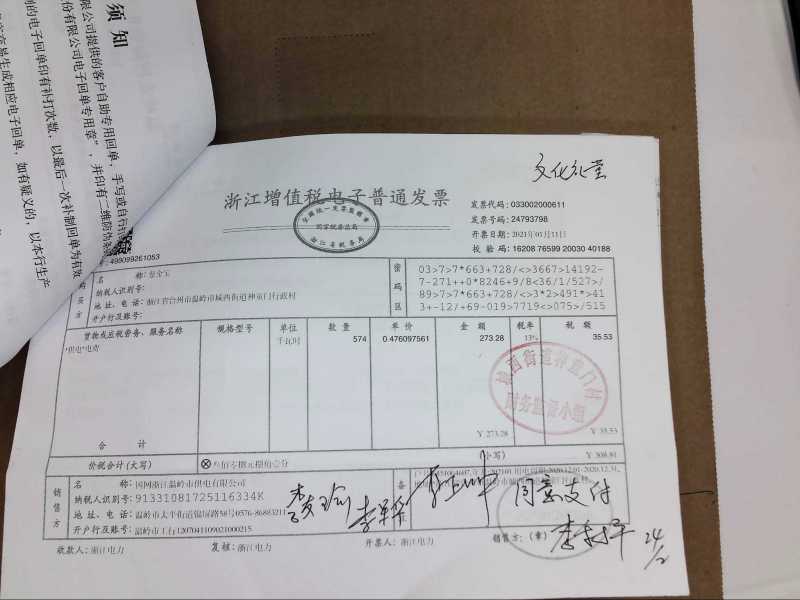 须知
限公司提供的客户自助专用回单，手写或自行
份有限公司电子回单专用章"，并印有二维防伪条
的电子回单印有补打次数，以最后一次补制回单为有效
交易生成相应电子回单，如有疑义的，以本行生产
文化礼堂
浙江增值税电子普通发票
全国统一发票监制章
国家税务总局
浙江省税务局
发票代码：033002000611
发票号码：24793798
开票日期：2021年01月11日
校验码：16208 76599 20030 40188
499099261053
购买方
名称：
纳税人识别号：
地址、电话：浙江省台州市温岭市城西街道神童门行政村
开户行及账号：
密码区
03>7>7*663+728/<>3667>14192-
7-271++0*8246+9/8<36/1/527>/
89>7>7*663+728/<>3*2>491*>41
3+-12/+69-019>7719<>075>/515
货物或应税劳务、服务名称 规格型号 单位 数量 单价 金额 税率 税额
*供电*电费 千瓦时 574 0.476097561 273.28 13% 35.53
城西街道神童门村
财务监督小组
合计 ¥273.28 ¥35.53
价税合计（大写） ⊗叁佰零捌元捌角壹分 （小写） ¥308.81
销售方
名称：国网浙江温岭市供电有限公司
纳税人识别号：91331081725116334K
地址、电话：温岭市太平街道锦屏路58号0576-86883211
开户行及账号：温岭市工行1207041109021000215
备注
同意支付
24/2
收款人：浙江电力 复核：浙江电力 开票人：浙江电力 销售方：（章）